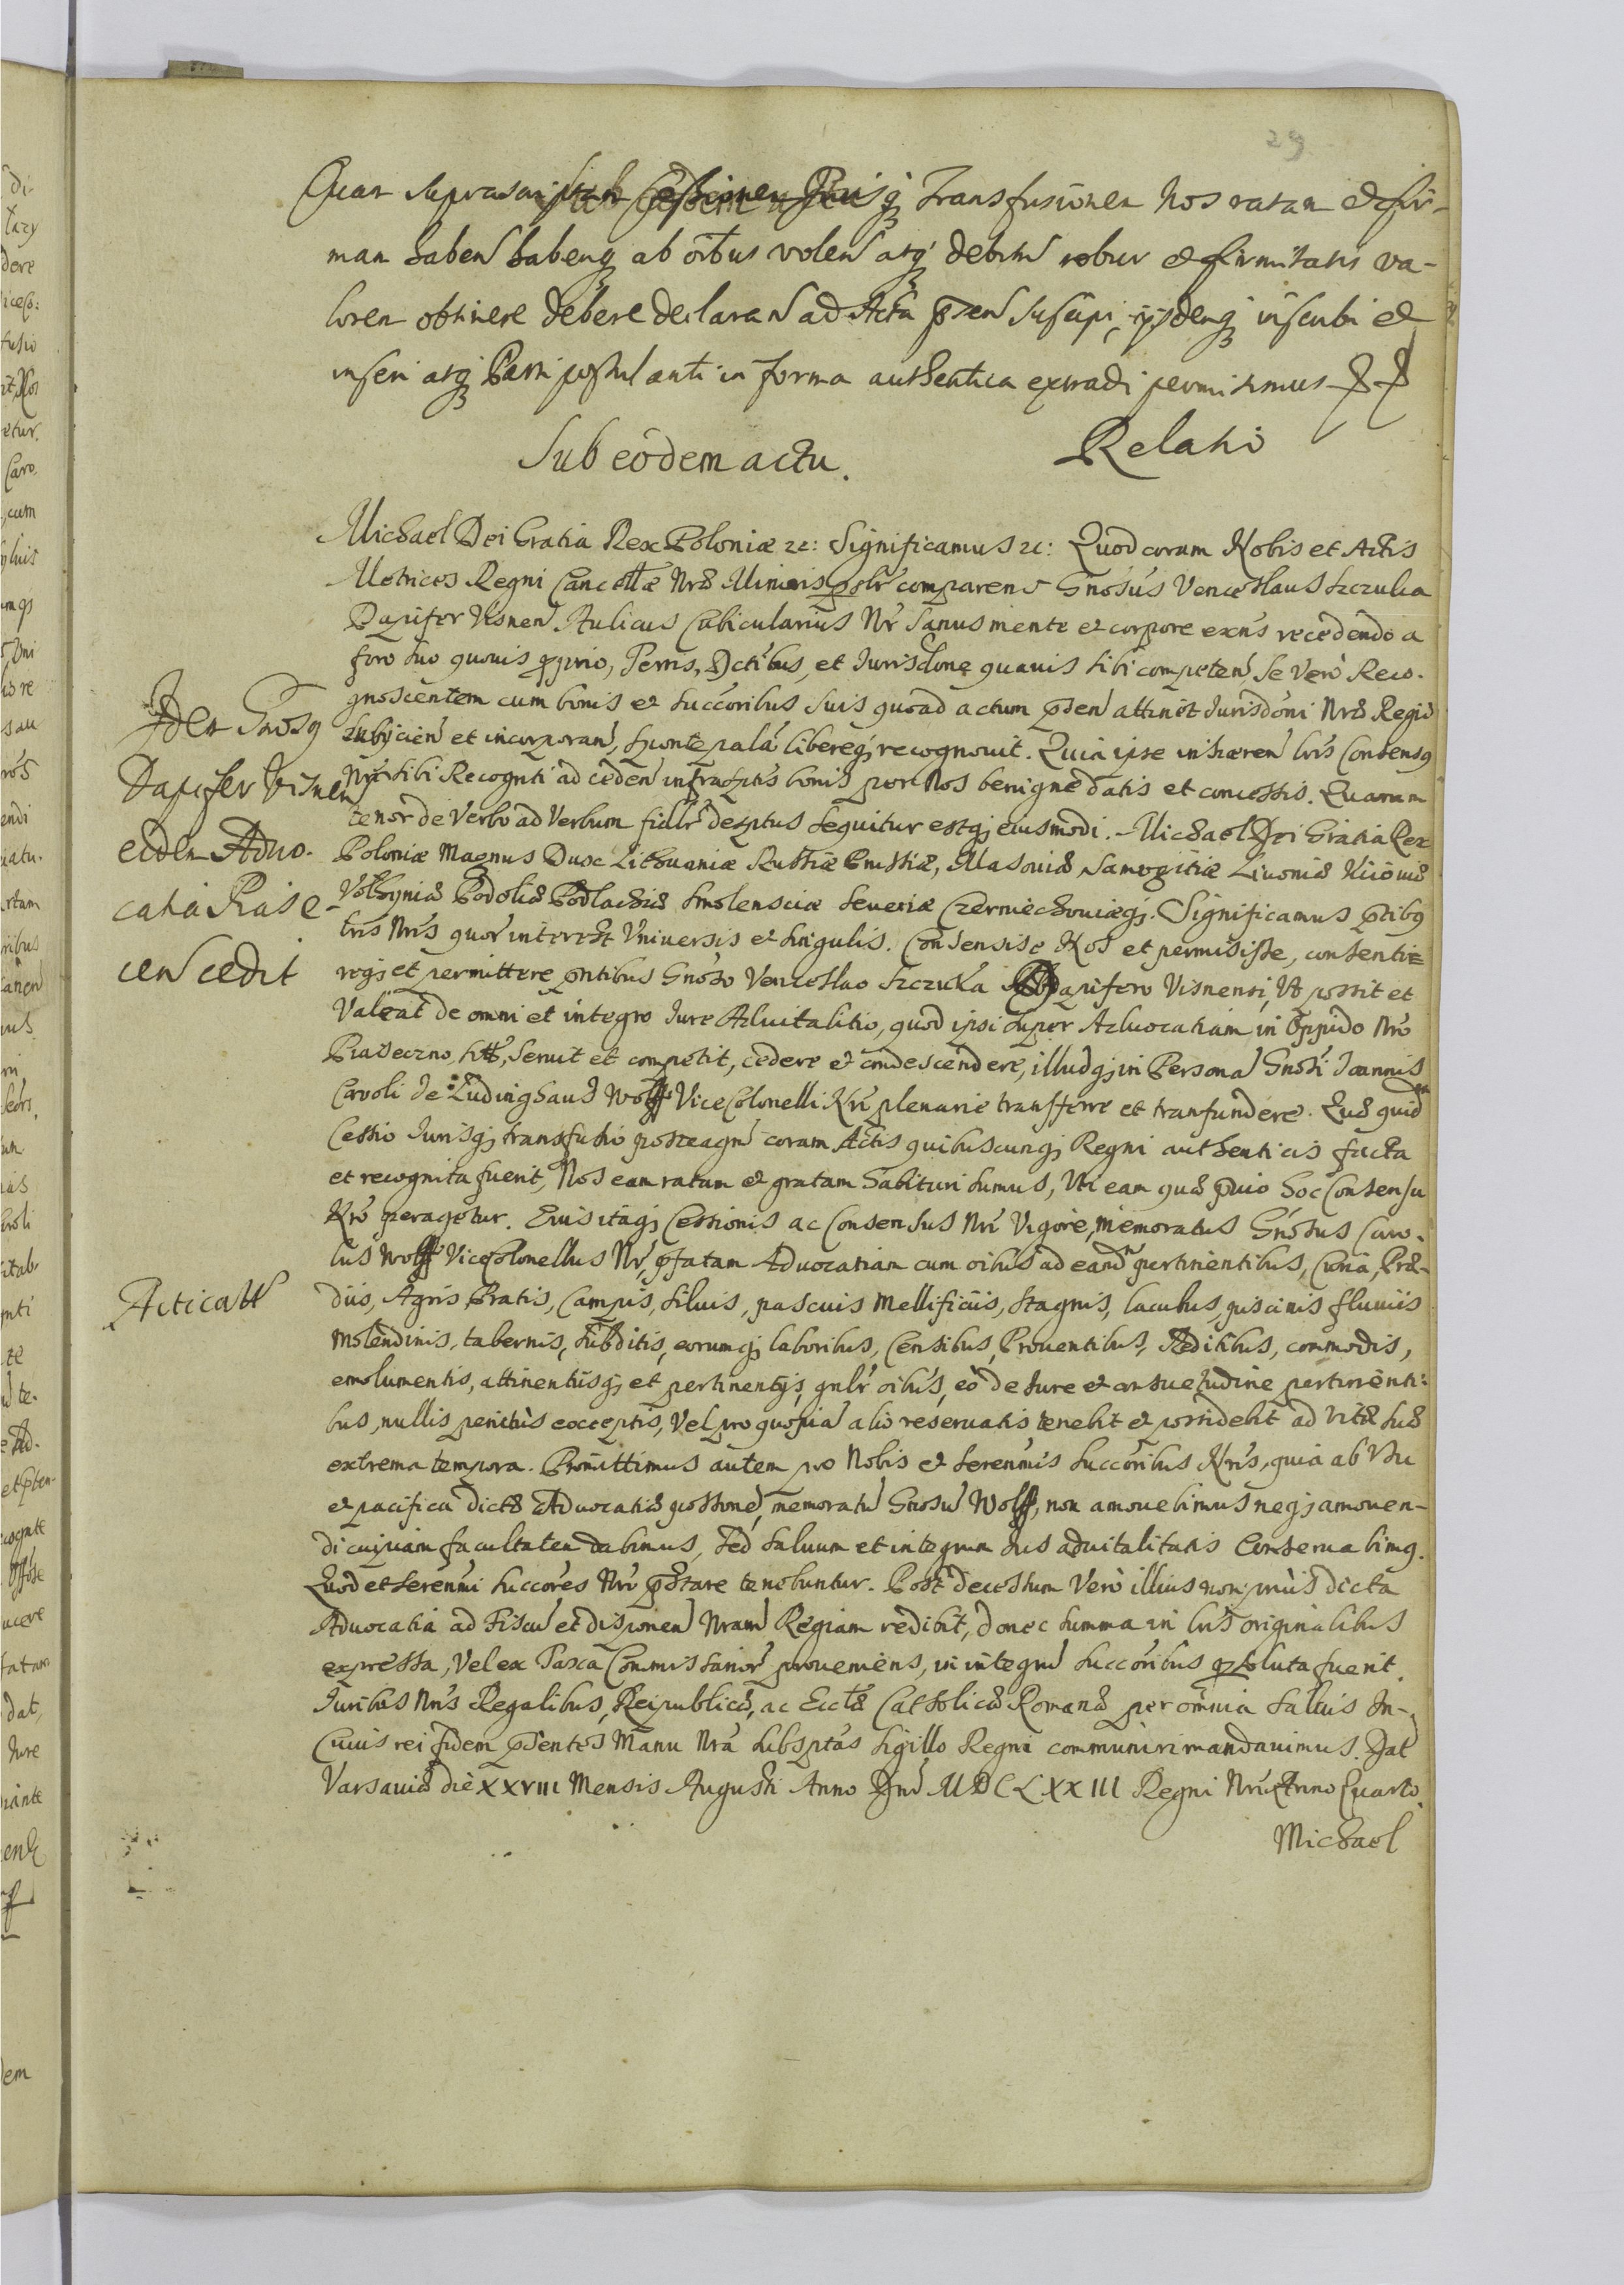 29
Quar suprascriptam Cessionem Jurisq Transfusionem Nos ratam et fir-
mam haben habeng ab oībus volen atq debitū robur et firmitatis va-
lorem obtinere debere declaran ad Acta p̄sen suscipi, ijsdemq inscribi et
inseri atq Parti postulanti in forma authentica extradi permisimus
Sub eodem actu.
Relatio
Michael Dei Gratia Rex Poloniæ zc: Significamus zc: Quod coram Nobis et Actis
Metrices Regni Cancellæ Nræ Minoris pslr comparens Gnosus Venceslaus Szczuka
Dapifer Visnen Aulicus Cubicularius Nr sanus mente et corpore exns recedendo a
foro suo quovis pprio, Terris, Dctibus, et Jurisdone quavis sibi competen, se vero Reco-
gnoscentem cum bonis et succoribus suis quoad actum psen attinet Jurisdoni Nræ Regiæ
subijcien et incorporan, sponte palā libereq recognovit. Quia ipse inhæren lris Consensq
Nri sibi Recognti ad ceden infrasptis bonis per Nos benigne datis et concessis. Quarum
tenor de Verbo ad Verbum fidlr desptus sequitur estq eiusmodi. Michael Dei Gratia Rex
Poloniæ Magnus Dux Lithuaniæ Russiæ Prussiæ, Masoviæ Samogitiæ Livoniæ Kijoviæ
Volhyniæ Podoliæ Podlachiæ Smolensciæ Severiæ Czerniechoviæq. Significamus pntibq
lris Nris quor interest Vniversis et singulis. Consensisse Nos et permisisse, consentie
req et permittere pntibus Gnoso Venceslao Szczuka Dapifero Visnensi, Vt possit et
Valeat de omni et integro Jure Advitalitio, quod ipsi super Advocatiam in Oppido Nro
Piaseczno, servit et competit, cedere et condescendere, illudq in Persona Gnosi Joannis
Caroli de Ludinghaus Wolff Vice Colonelli Nri plenarie transferre et tranfundere. Quæ quid
Cessio Jurisq transfusio posteaqm coram Actis quibuscunq Regni authenticis facta
et recognita fuerit, Nos eam ratam et gratam habituri sumus, Vti eam quæ pvio hoc Consensu
Nro peragetur. Eius itaq Cessionis ac Consensus Nri Vigore, memoratus Gnosus Caro-
lus Wolff Vicecolonellus Nr, pfatam Advocatiam cum oibus ad eand pertinentibus, Curia, Præ-
diis, Agris Pratis, Campis, silvis, pascuis Mellificiis, stagnis, lacubus, piscinis fluviis
Molendinis, tabernis, subditis, eorumq laboribus, Censibus, Proventibus, Reditibus, commodis,
emolumentis, attinentiisq et pertinentijs gnlr oibus, eo de Jure et consuetudine pertinenti-
bus, nullis penitus exceptis, Vel pro quopiā alio reservatis tenebit et possidebit ad Vitæ suæ
extrema tempora. Promittimus autem pro Nobis et serenmis succoribus Nris, quia ab Vsu
et pacifica dictæ Advocatiæ possone, memoratū Gnosū Wolff, non amovebimus neq amoven-
di cuipiam facultatem dabimus, sed salvum et integrum Jus advitalitatis Conservabimq.
Quod et serenmi succores Nri pstare tenebuntur. Post decessum Vero illius non prius dicta
Advocatia ad Fiscū et disponen Nram Regiam redibit, donec summa in lris originalibus
expressa, Vel ex Taxa Commissarior proveniens, in integrū succoribus psoluta fuerit.
Juribus Nris Regalibus, Reipublicæ, ac Ecclæ Catholicæ Romanæ per omnia salvis In-
Cuius rei fidem psentes Manu Nra subsptas sigillo Regni communiri mandavimus. Dat
Varsaviæ die XXVIII Mensis Augusti Anno Dni MDCLXXIII Regni Nri Anno Quarto.
Michael
Idem Gnosq
Dapifer Visnen
eidem Advo-
catia Piase-
cen cedit
Acticatt